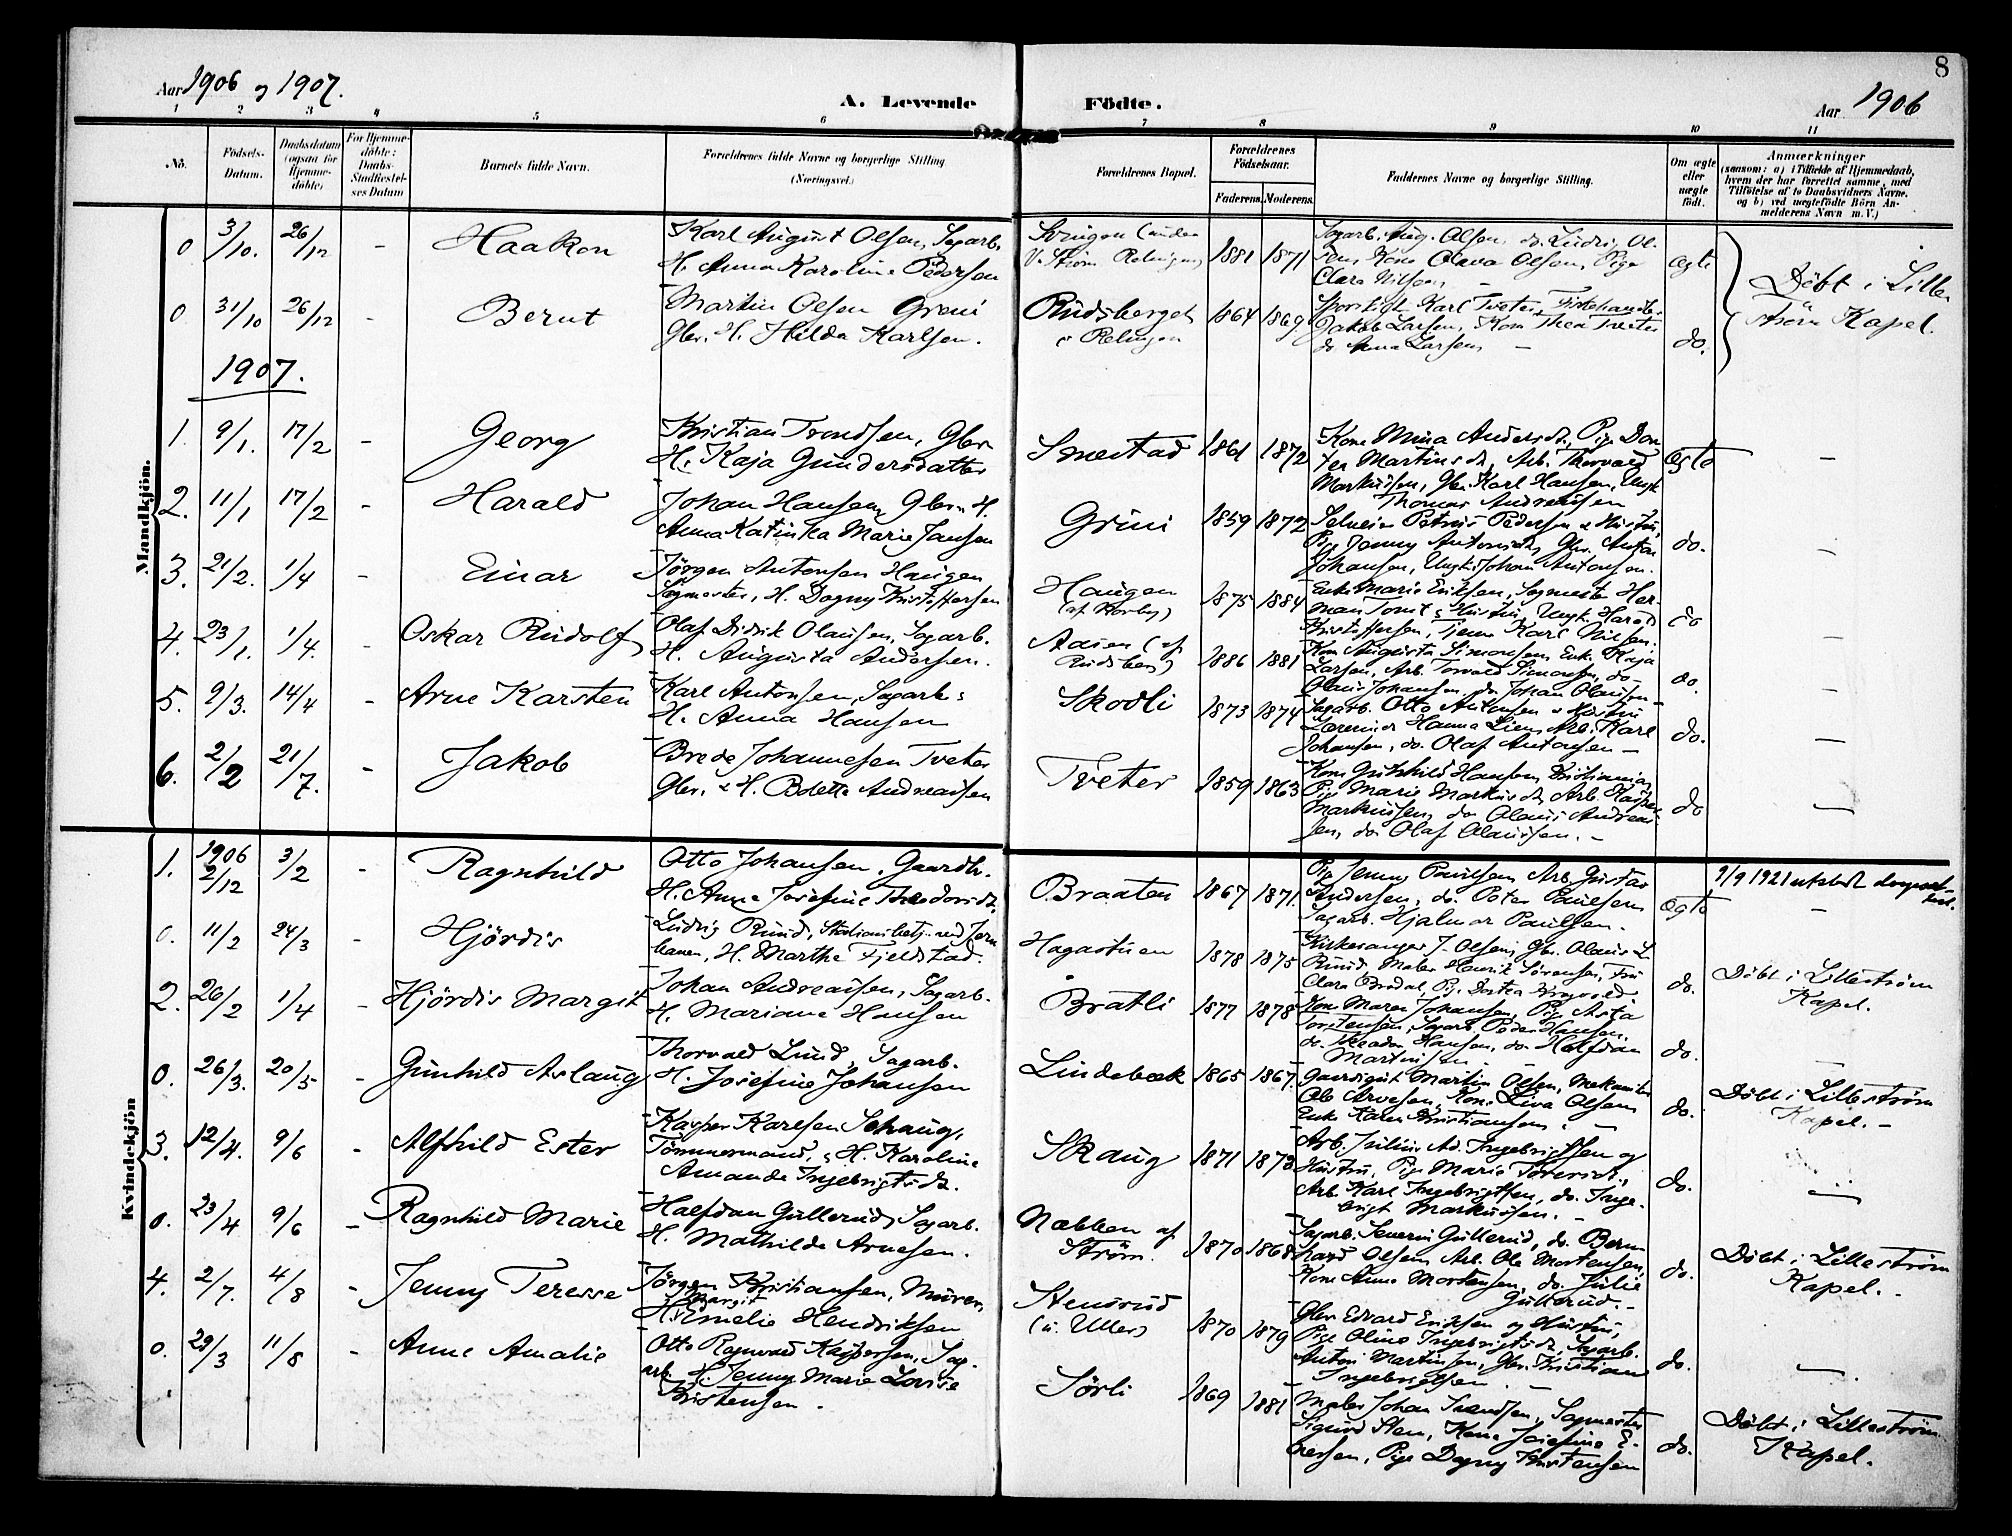 8
Aar 1906 og 1907.
A. Levende Födte.
Aar 1906
1 2 3 4 5 6 7 8 9 10 11
No.
Födsels-Datum.
Daabsdatum (ogsaa for Hjemmedöbte)
For Hjemmedöbte: Daabs-Stadfæstelses Datum
Barnets fulde Navn.
Forældrenes fulde Navne og borgerlige Stilling (Næringsvei.)
Forældrenes Bopæl.
Forældrenes Födselsaar.
Faderens Moderens
Faddernes Navne og borgerlige Stilling.
Om ægte eller uægte födt.
Anmærkninger
(saasom: a) i Tilfælde af Hjemmedaab, hvem der har forrettet samme, med Tilföielse af to Daabsvidners Navne, og b) ved uægtefödte Börn Anmelderens Navn m. V.)
Mandkjön.
0 3/10. 26/12 - Haakon
Karl August Olsen, Sagarb.
H. Anna Karoline Pedersen
1881 1871
Sagarb. Aug. Olsen, do. Ludvig Olsen, Kone Olava Olsen, Pige
Clara Nilsen -
ægte
Döbt i Lilleström Kapel.
0 31/10 26/12 - Bernt
Martin Olsen Grini
Gbr. H. Hilda Karlsen.
Rudsberget
i Relingen
1864 1869
Karl Tveter,
Jakob Larsen, Kone Thea Tveter
do Anna Larsen -
do.
1907.
1. 9/1. 17/2 - Georg
Kristian Trondsen, Gbr.
H. Kaja Gundersdatter
Smestad 1861 1872
Kone Mina Andersd., Pige Dorthea Martinsd., Arb. Thorvald
Markussen, Gbr. Karl Hansen, Ungk.
Thomas Andreassen
ægte -
2. 11/1 17/2 - Harald
Johan Hansen, Gbr. H.
Anna Katinka Marie Jansen
Grini 1859 1872
Petrus Pedersen & Hustru,
Pige Jenny Antonsd., Gbr. Anton
Johansen, Ungk. Johan Antonsen.
do. -
3. 21/2. 1/4 - Einar
Jörgen Antonsen Haugen
Sagmester, H. Dagny Kristoffersen
Haugen
1875 1884
Enke Marie Eriksen, Sagmester Herman Tomt & Hustru, Ungk. Harald
Kristoffersen, Karl Nilsen.
do -
4. 23/1. 1/4. - Oskar Rudolf
Olaf Didrik Olausen, Sagarb.
H. Augusta Andersen.
Aasen (af
Rudsberg)
1886 1881
Kone Augusta Simonsen, Enke Kaja
Larsen, Arb. Torvald Simonsen, do
Olaus Johansen, do Johan Olausen -
do. -
5. 9/3. 14/4 - Arne Karsten
Karl Antonsen, Sagarb.
H. Anna Hansen
Skodli 1873 1874
Sagarb. Otto Antonsen & Hustru
Lærerinde Hanna Lien, Arb. Karl
Johansen, do. Olaf Antonsen -
do. -
6. 2/2 21/7. - Jakob
Brede Johannesen Tveter
Gbr. & H. Bolette Andreassen
Tveter 1859 1863
Kone Gunhild Hansen, Kristiania,
Pige Marie Markusd., Arb. Kasper
Markussen, do Olaus Andreassen, do Olaf Olaussen. -
do -
Kvindekjön
1. 1906 2/12 3/2 - Ragnhild
Otto Johansen, Gaardbr.
H. Anne Josefine Theodorsd.
Braaten 1867 1871
Pige Jenny Paulsen, Arb. Gustav
Andersen, do. Peter Paulsen,
Sagarb. Hjalmar Paulsen. -
ægte
9/9 1921 utstedt
0. 11/2 24/3 - Hjördis
Ludvig Ruud, Stationsbetj. ved Jernbanen, H. Marthe Fjeldstad.
Hagastuen 1878 1875
Kirkesanger J. Olsen, Gbr. Olaus L.
Ruud, Maler Henrik Sörensen, Fru
Clara Brodal, Pige Dortea
do.
Döbt i Lilleström
Kapel.
2. 26/2 1/4 - Hjördis Margit
Johan Andreassen, Sagarb.
H. Mariane Hansen
Bråtli 1877 1878
Kone Maren Johansen, Pige Asta
Torstensen, Sagarb. Peder Hansen,
do. Teodor Hansen, do Halfdan
Martinsen -
do. -
0. 26/3. 20/5 - Gunhild Aslaug
Thorvald Lund, Sagarb.
H. Josefine Johansen
Lindebæk 1865 1867.
Gaardgut Martin Olsen, Mekaniker
Ole Arvesen, Kone Liva Olsen
Enke Karen Kristiansen. -
do.
Döbt i Lilleström
Kapel. -
3. 12/4. 9/6 - Alfhild Ester
Kasper Karlsen Schaug,
Tömmermand, & H. Karoline
Amanda Ingebrigtsd.
Skaug 1871 1873
Arb. Julius Ad. Ingebrigtsen og
Hustru, Pige Marie
Arb. Karl Ingebrigtsen, do. Ingebrigt Markussen. -
do. -
0. 23/4 9/6 - Ragnhild Marie
Halfdan Gullerud, Sagarb.
H. Mathilde Arnesen.
Næbben af
Ström. 1870 1868
Sagarb. Severin Gullerud, do. Bernhard Olsen, Arb. Ole Mortensen,
Kone Anne Mortensen, do. Julie
Gullerud. -
do.
Döbt i Lilleström
Kapel. -
4. 2/7. 4/8 - Jenny Terese
Jörgen Kristiansen, Murer,
H. Margit Emelie Hendriksen
Stensrud
(u. Uller)
1870 1879
Gbr. Edvard Eriksen og Hustru,
Pige Oline Ingebrigtsd., Sagarb.
Anton Martinsen, Gbr. Kristian
Ingebrigtsen -
do. -
0. 29/3 11/8 - Anne Amalie
Otto Ragnvald Kaspersen, Sagarb. H. Jenny Marie Lovise
Kristensen.
Sörli 1869 1881
Maler Johan Svendsen, Sagmester
Sigurd Sten, Kone Josefine Enersen, Pige Dagny Kristensen
do.
Döbt i Lilleström
Kapel.